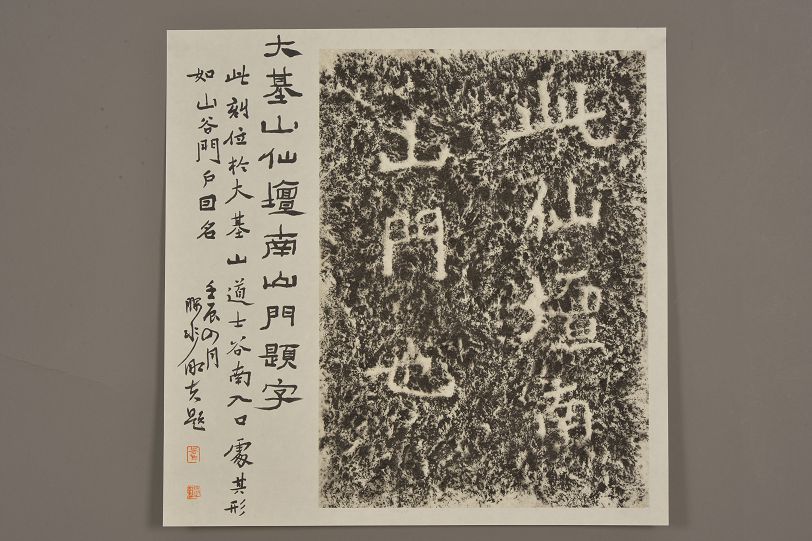 此仙壇南
山門也
大基山仙壇南山門題字
此刻位於大基山道士谷南入口處其形
如山谷門戶囙名
壬辰四月
題